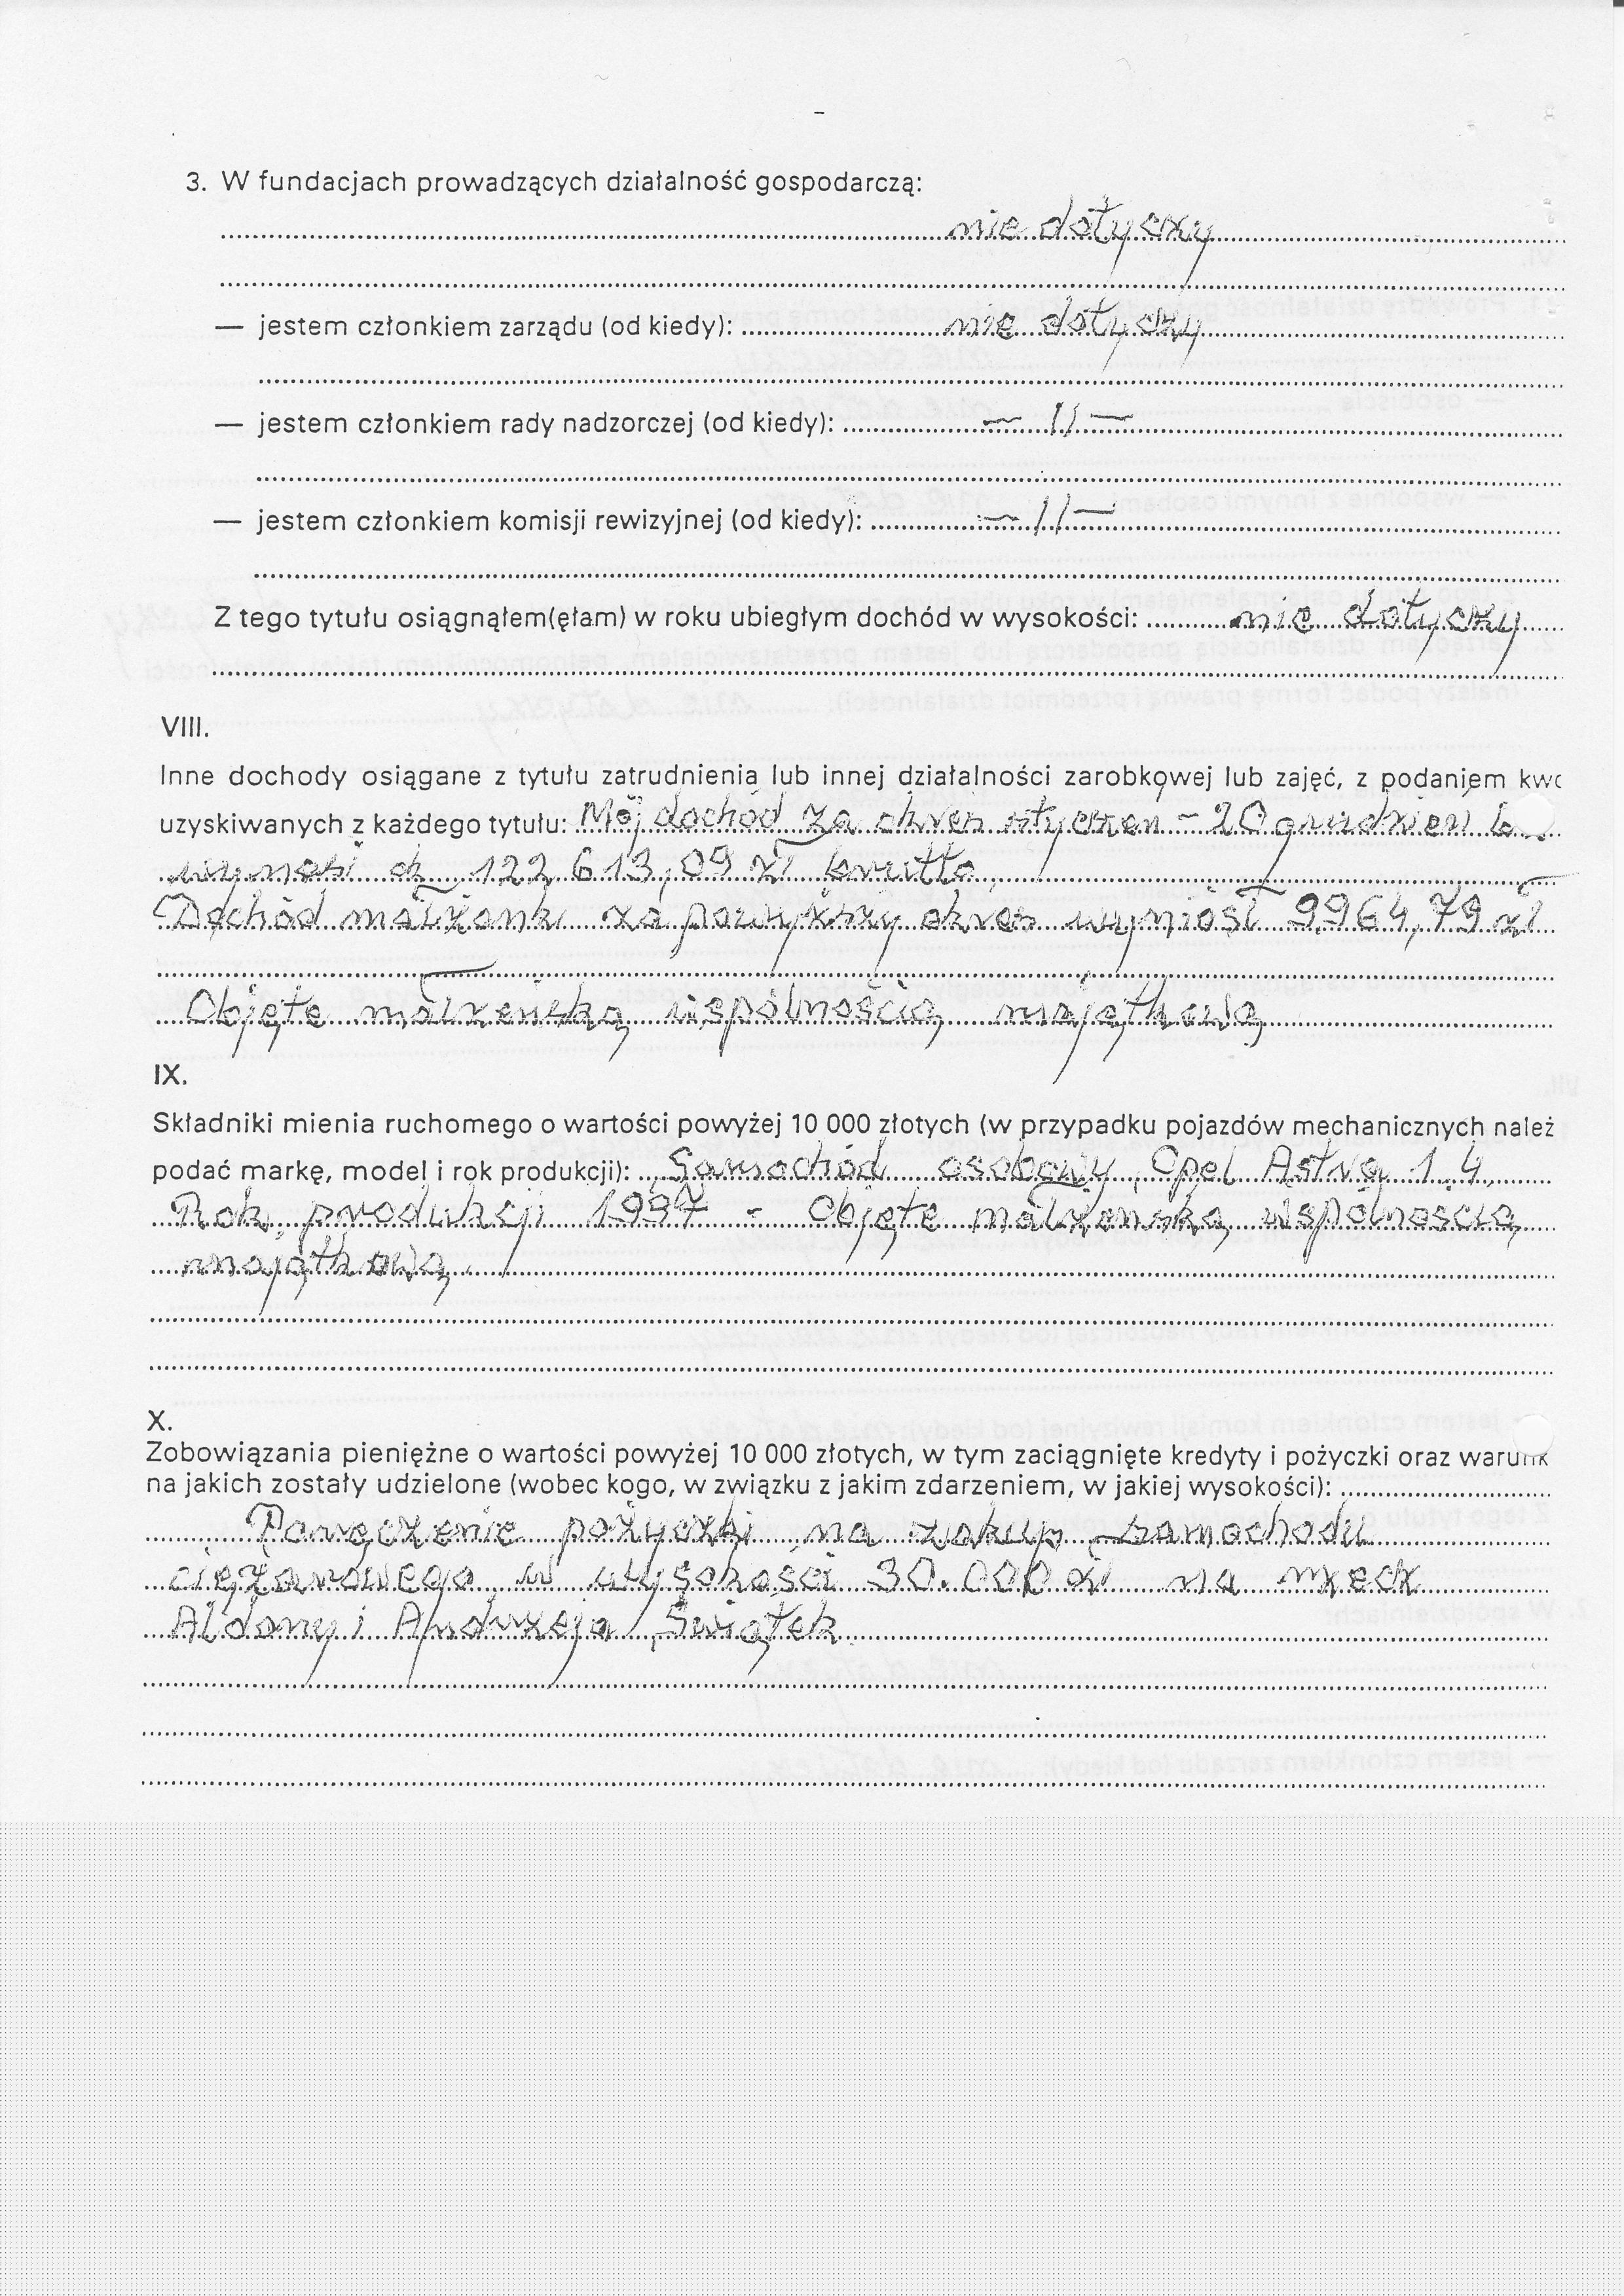 3. W fundacjach prowadzących działalność gospodarczą:
nie dotyczy
— jestem członkiem zarządu (od kiedy): nie dotyczy
— jestem członkiem rady nadzorczej (od kiedy): — 11 —
— jestem członkiem komisji rewizyjnej (od kiedy): — 11 —
Z tego tytułu osiągnąłem(ęłam) w roku ubiegłym dochód w wysokości: nie dotyczy
VIII.
Inne dochody osiągane z tytułu zatrudnienia lub innej działalności zarobkowej lub zajęć, z podaniem kwo
uzyskiwanych z każdego tytułu: Mój dochód za okres styczeń - 20 grudzień
wynosi 122 613,09 zł brutto,
Dochód małżonki za powyższy okres wyniósł 9964,79 zł
Objęte małżeńską wspólnością majątkową
IX.
Składniki mienia ruchomego o wartości powyżej 10 000 złotych (w przypadku pojazdów mechanicznych należ
podać markę, model i rok produkcji): Samochód osobowy, Opel Astra 1.4,
Rok produkcji 1997 - Objęte małżeńską wspólnością
majątkową.
X.
Zobowiązania pieniężne o wartości powyżej 10 000 złotych, w tym zaciągnięte kredyty i pożyczki oraz warunk
na jakich zostały udzielone (wobec kogo, w związku z jakim zdarzeniem, w jakiej wysokości):
Poręczenie pożyczki na zakup samochodu
ciężarowego w wysokości 30.000 zł na rzecz
Aldony i Andrzeja Świątek